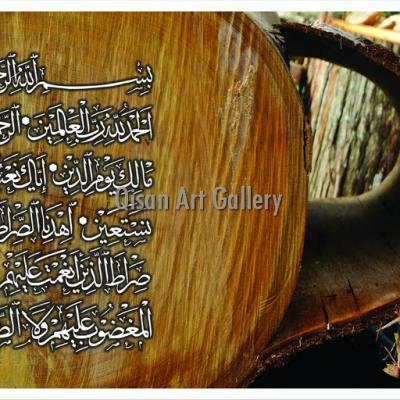 بِسْمِ اللَّهِ
الْحَمْدُ لِلَّهِ رَبِّ الْعَالَمِينَ
مَالِكِ يَوْمِ الدِّينِ إِيَّاكَ
نَسْتَعِينُ اهْدِنَا
صِرَاطَ الَّذِينَ أَنْعَمْتَ عَلَيْهِمْ
الْمَغْضُوبِ عَلَيْهِمْ وَلَا
Qisan Art Gallery